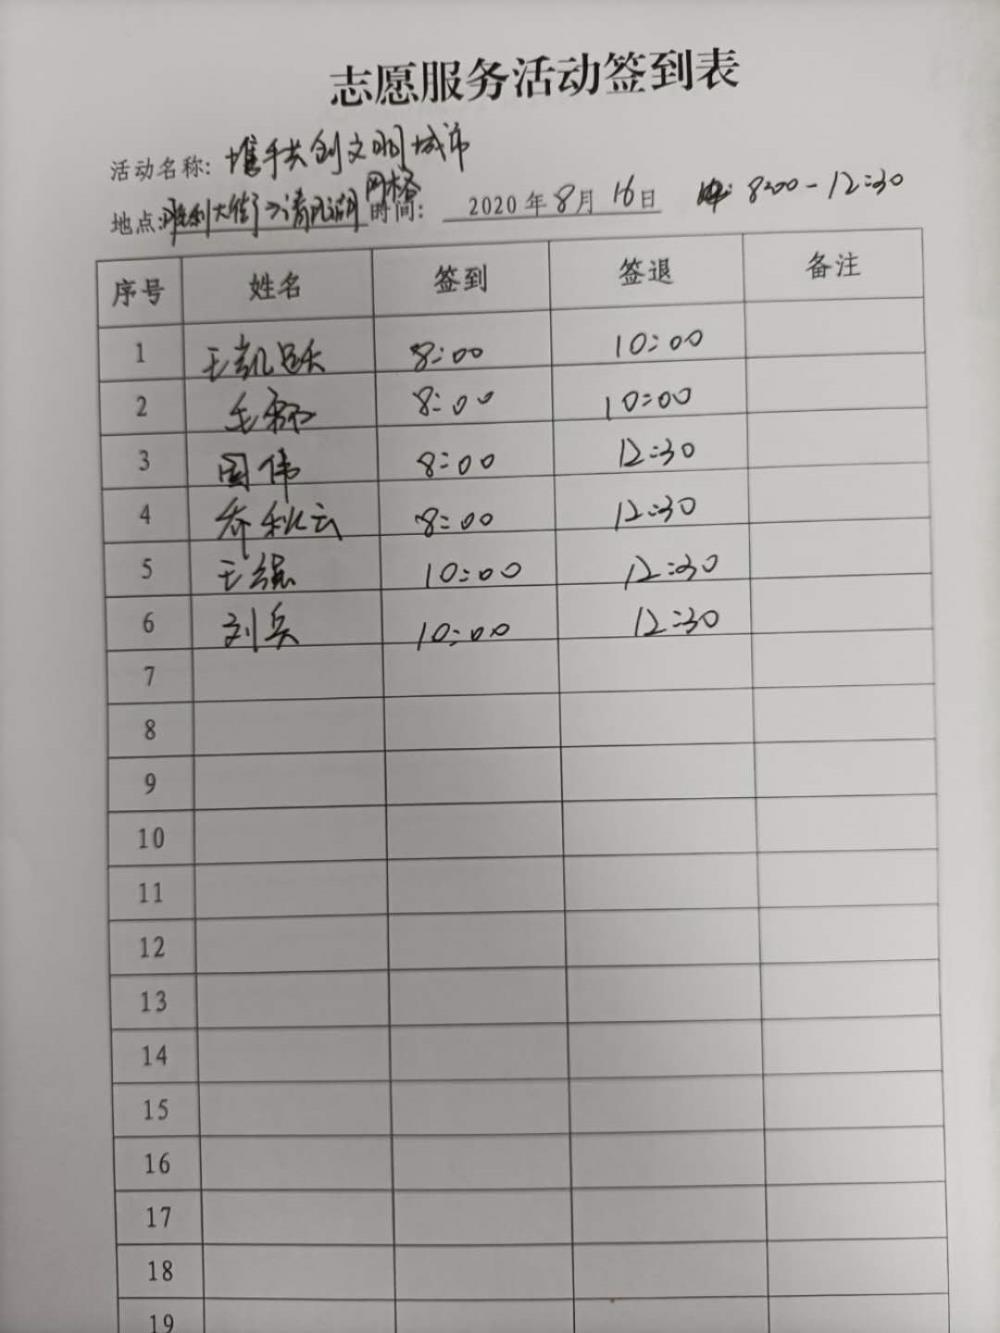 志愿服务活动签到表
活动名称: 携手共创文明城市
地点: 胜利大街 清风湖网格 时间: 2020年8月16日 8:00-12:30
序号 姓名 签到 签退 备注
1 王凯跃 8:00 10:00
2 8:00 10:00
3 周伟 8:00 12:30
4 乔秋云 8:00 12:30
5 王强 10:00 12:30
6 刘兵 10:00 12:30
7
8
9
10
11
12
13
14
15
16
17
18
19